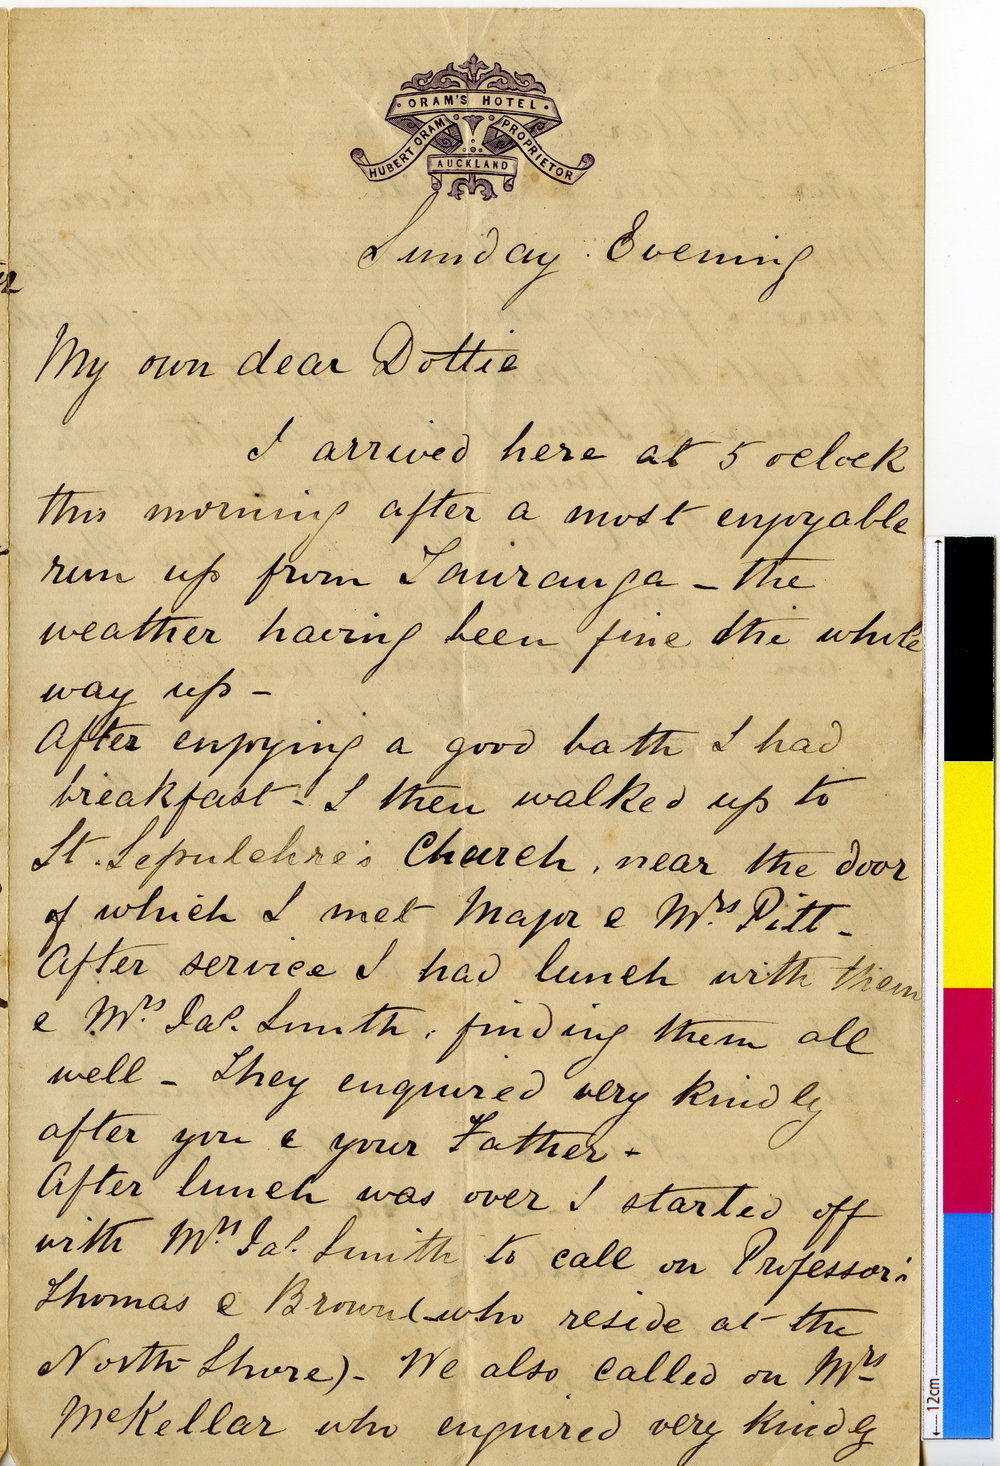 ORAM'S HOTEL
HUBERT ORAM PROPRIETOR
AUCKLAND
Sunday Evening
My own dear Dottie
I arrived here at 5 oclock
this morning after a most enjoyable
run up from Tauranga - the
weather having been fine the whole
way up -
After enjoying a good bath I had
breakfast - I then walked up to
St. Sepulchre's Church, near the door
of which I met Major & Mrs. Pitt -
After service I had lunch with them
& Mrs. Jas. Smith, finding them all
well - They enquired very kindly
after you & your Father -
After lunch was over I started off
with Mrs. Jas. Smith to call on Professors
Thomas & Brown (who reside at the
North Shore) - We also called on Mrs
McKellar who enquired very kindly
12cm